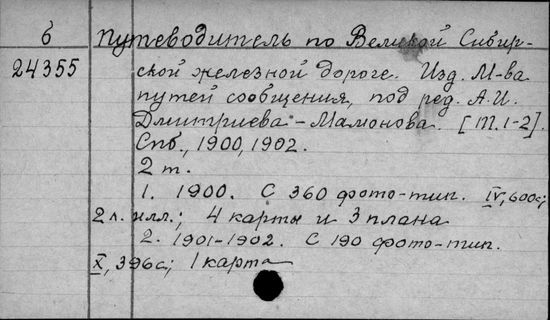 б Путеводитель по Великой Сибир-
24355 ской железной дороге. Изд. М-ва
путей сообщения, под ред. А.И.
Дмитриева-Мамонова. [Т.1-2].
Спб., 1900, 1902.
2 т.
1. 1900. С 360 фото-тип. IV, 600с;
2 л. илл.; 4 карты и 3 плана
2. 1901-1902. С 190 фото-тип.
X, 396с; 1 карта